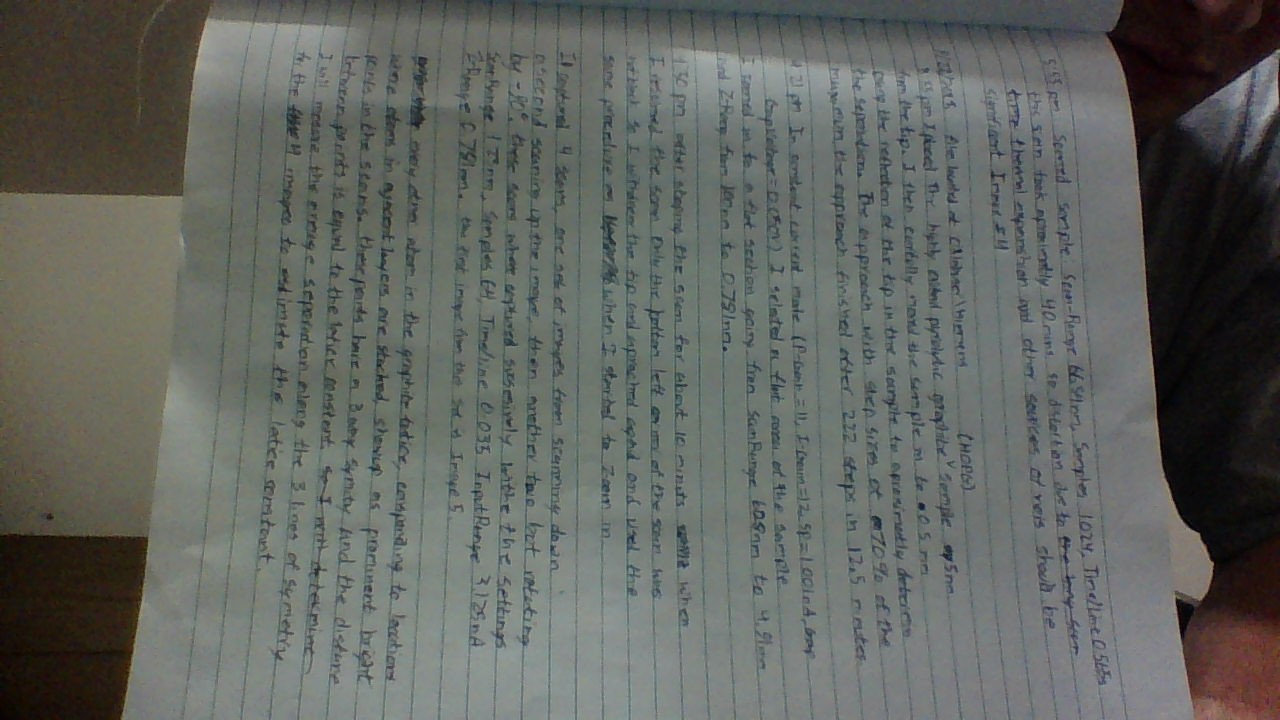 5:55 pm Scanned sample: Scan-Range 66.54nm, Samples 1024, Time/Line 0.565s
this scan took aproximatly 40 mins so distortion due to the long scan
time thermal expanshion and other sources of nois should be
significant Image #4
File located at
(HOPG)
I placed The highly pyrolytic graphite sample 5nm
from the tip. I then carfully moved the sample in to 0.5 mm
using the reflection of the tip in the sample to aproximatly determin
the seperation. The approach with step sizes of 70% of the
maximum the approach finished after 222 steps in 12.5 minutes
pm In constant current mode (P-Gain = 11, I-Gain = 12, SP = 1.001nA, Gap
GapVoltage = 0.050V) I selected a flat area of the sample
I zoomed in to a flat section going from ScanRange 608nm to 4.91nm
and Z-Range from 100nm to 0.781nm.
:30 pm after stoping the scan for about 10 minuts when
I resumed the scan Only the bottom left corner of the scan was
not black so I withdrew the tip and aproached again and used the
same procedure as when I started to Zoom in
I captured 4 scans, one set of images from scanning down
a second scaning up the image, then another two but rotating
by -90°. these scans where captured sucsesively withe the settings
ScanRange nm, Samples 64, Time/line 0.03s InputRange 3.125nA
Z-Range 0.781nm. the first image from this set is Image 5.
every other atom in the graphite latice, corisponding to locations
where atoms in ajacent layers are stacked, showup as prominent bright
points in the scans. these points have a 3 way symity and the distance
between points is equal to the latice constant. So I will determine
I will measure the average seperation along the 3 lines of symetry
for the 4 images to estimate the latice constant.